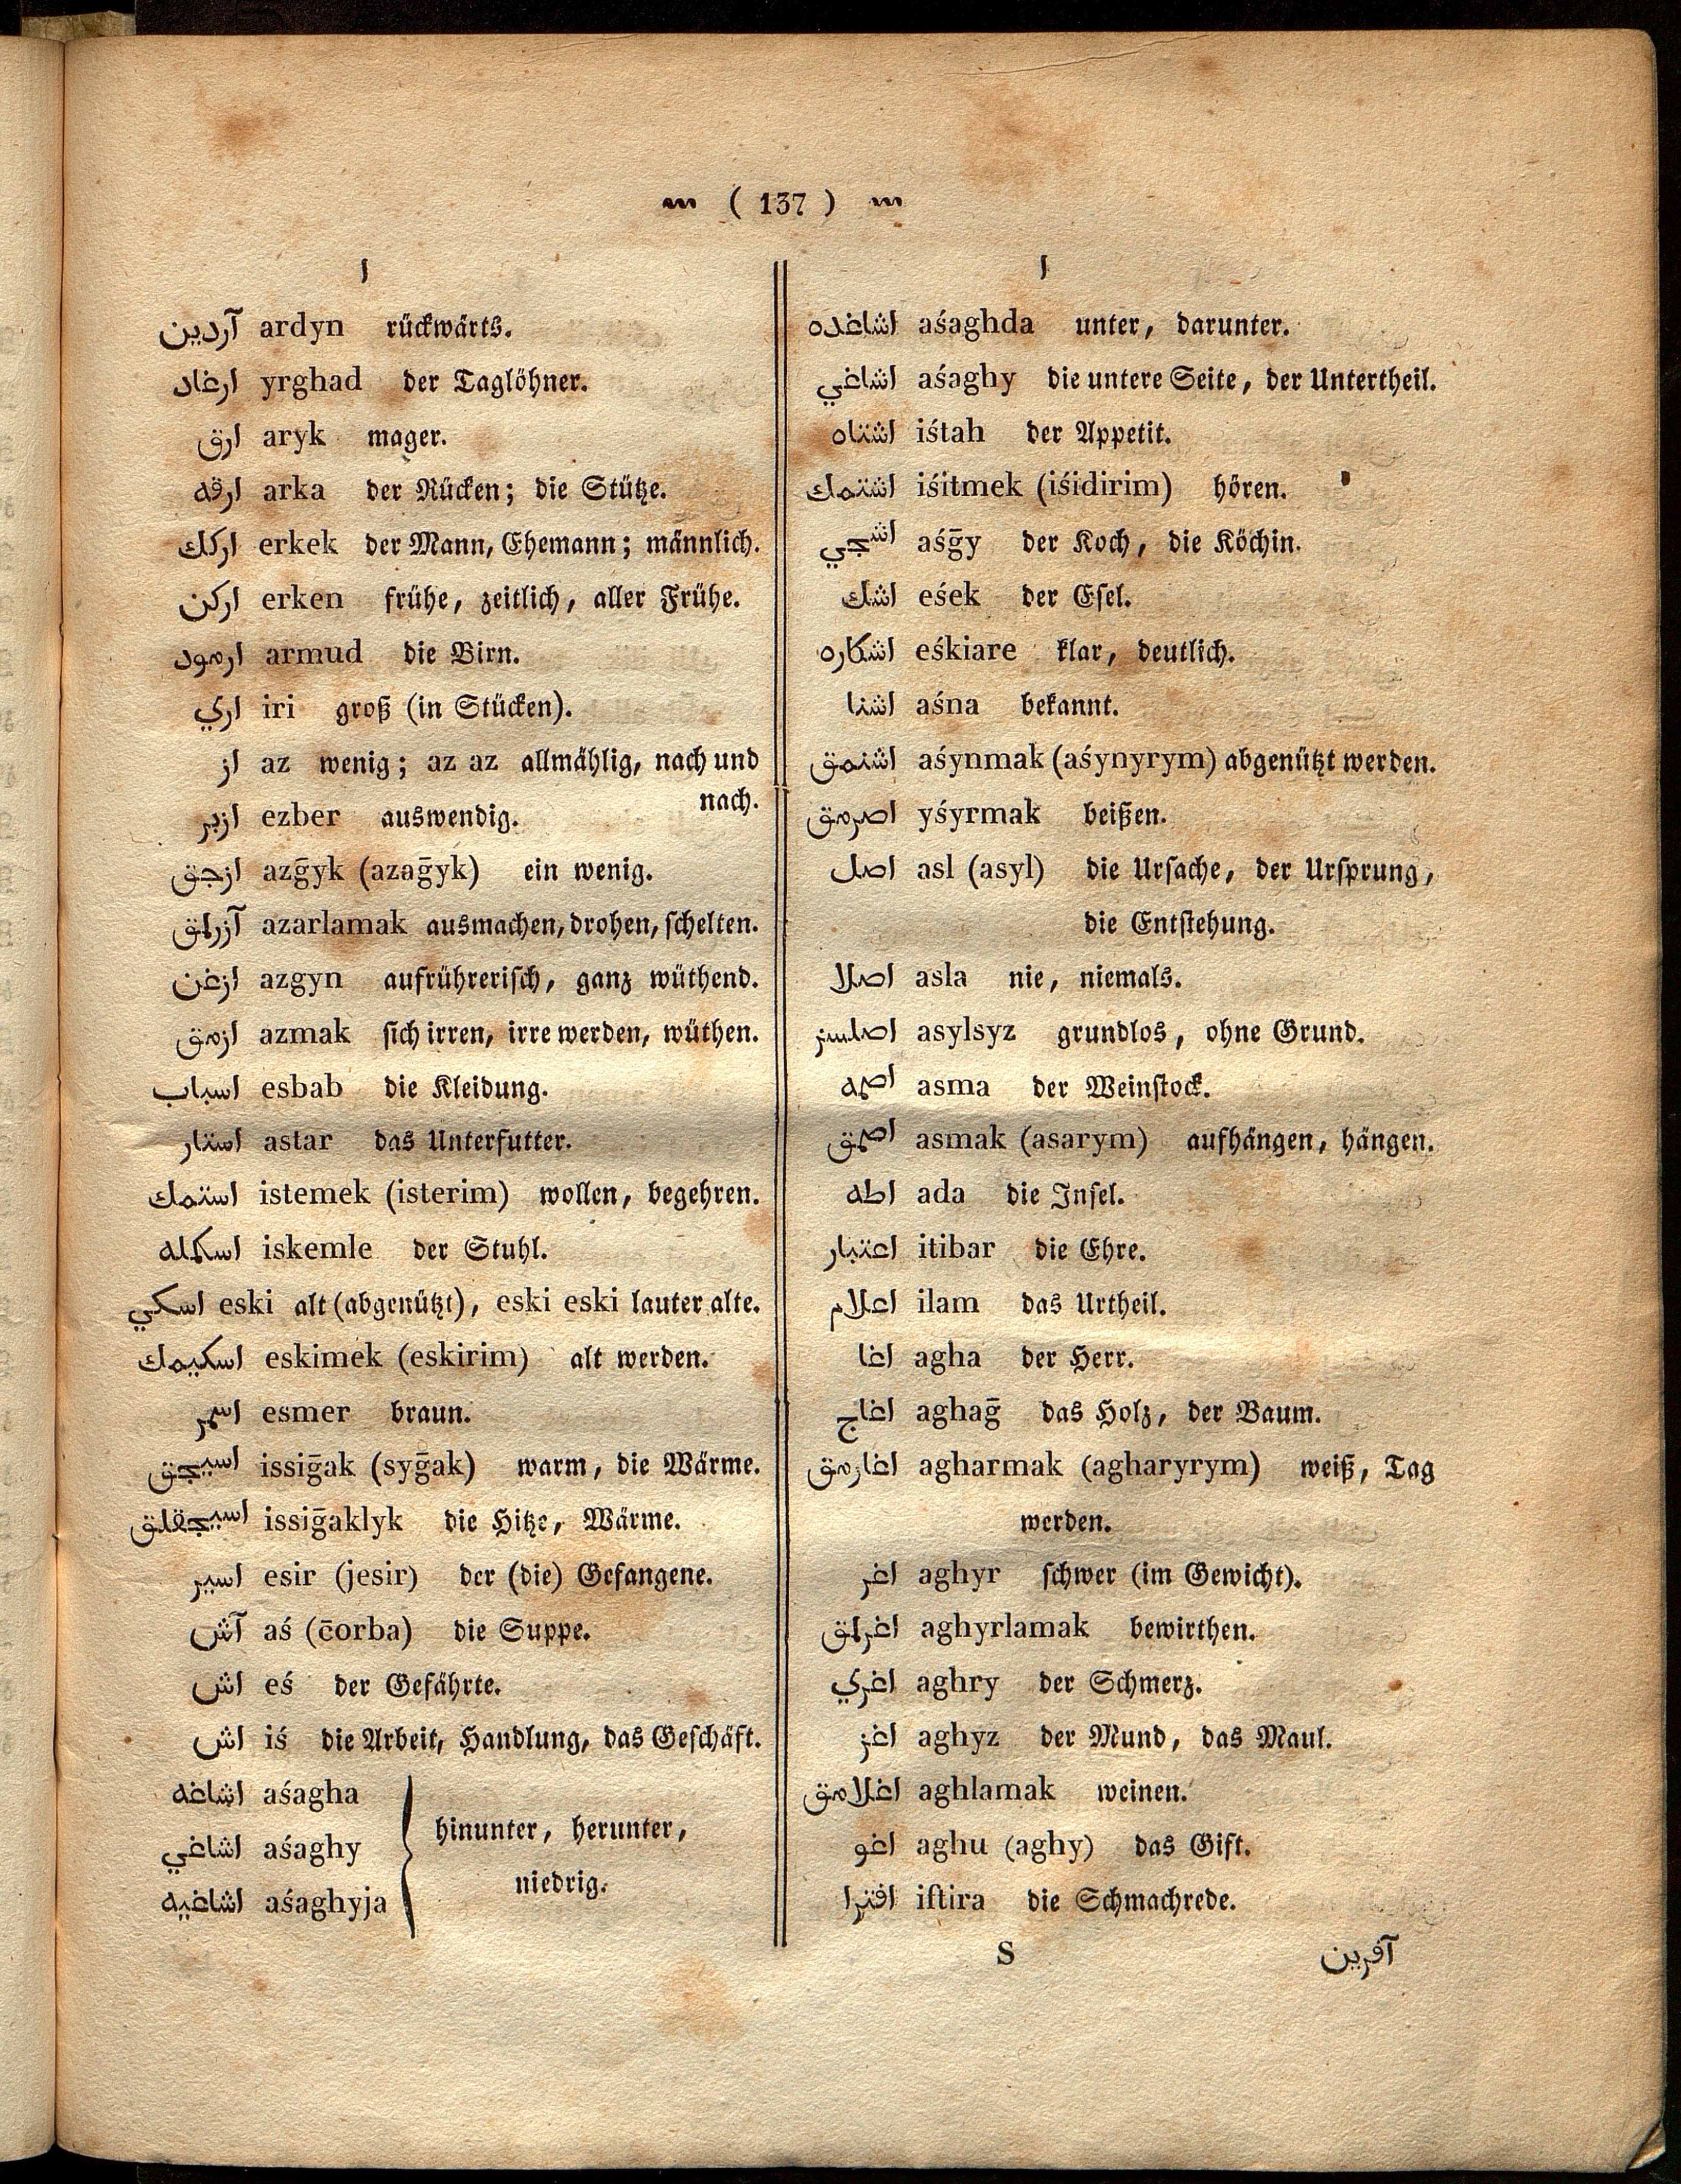 ( 137 )
ا
آردين ardyn rückwärts.
ارغاد yrghad der Taglöhner.
ارق aryk mager.
ارقه arka der Rücken; die Stütze.
اركك erkek der Mann, Ehemann; männlich.
اركن erken frühe, zeitlich, aller Frühe.
ارمود armud die Birn.
اري iri groß (in Stücken).
از az wenig; az az allmählig, nach und
nach.
ازبر ezber auswendig.
ازجق azḡyk (azaḡyk) ein wenig.
آزرلمق azarlamak ausmachen, drohen, schelten.
ازغن azgyn aufrührerisch, ganz wüthend.
ازمق azmak sich irren, irre werden, wüthen.
اسباب esbab die Kleidung.
استار astar das Unterfutter.
استمك istemek (isterim) wollen, begehren.
اسكمله iskemle der Stuhl.
اسكي eski alt (abgenützt), eski eski lauter alte.
اسكيمك eskimek (eskirim) alt werden.
اسمر esmer braun.
اسيجق issiḡak (syḡak) warm, die Wärme.
اسيجقلق issiḡaklyk die Hitze, Wärme.
اسير esir (jesir) der (die) Gefangene.
آش aś (c̄orba) die Suppe.
اش eś der Gefährte.
اش iś die Arbeit, Handlung, das Geschäft.
اشاغه aśagha
اشاغي aśaghy
اشاغيه aśaghyja
hinunter, herunter,
niedrig.
ا
اشاغده aśaghda unter, darunter.
اشاغي aśaghy die untere Seite, der Untertheil.
اشتاه iśtah der Appetit.
اشتمك iśitmek (iśidirim) hören.
اشجي aśḡy der Koch, die Köchin.
اشك eśek der Esel.
اشكاره eśkiare klar, deutlich.
اشنا aśna bekannt.
اشنمق aśynmak (aśynyrym) abgenützt werden.
اصرمق yśyrmak beißen.
اصل asl (asyl) die Ursache, der Ursprung,
die Entstehung.
اصلا asla nie, niemals.
اصلسز asylsyz grundlos, ohne Grund.
اصمه asma der Weinstock.
اصمق asmak (asarym) aufhängen, hängen.
اطه ada die Insel.
اعتبار itibar die Ehre.
اعلام ilam das Urtheil.
اغا agha der Herr.
اغاج aghaḡ das Holz, der Baum.
اغارمق agharmak (agharyrym) weiß, Tag
werden.
اغر aghyr schwer (im Gewicht).
اغرلمق aghyrlamak bewirthen.
اغري aghry der Schmerz.
اغز aghyz der Mund, das Maul.
اغلامق aghlamak weinen.
اغو aghu (aghy) das Gift.
افترا iftira die Schmachrede.
S آفرين